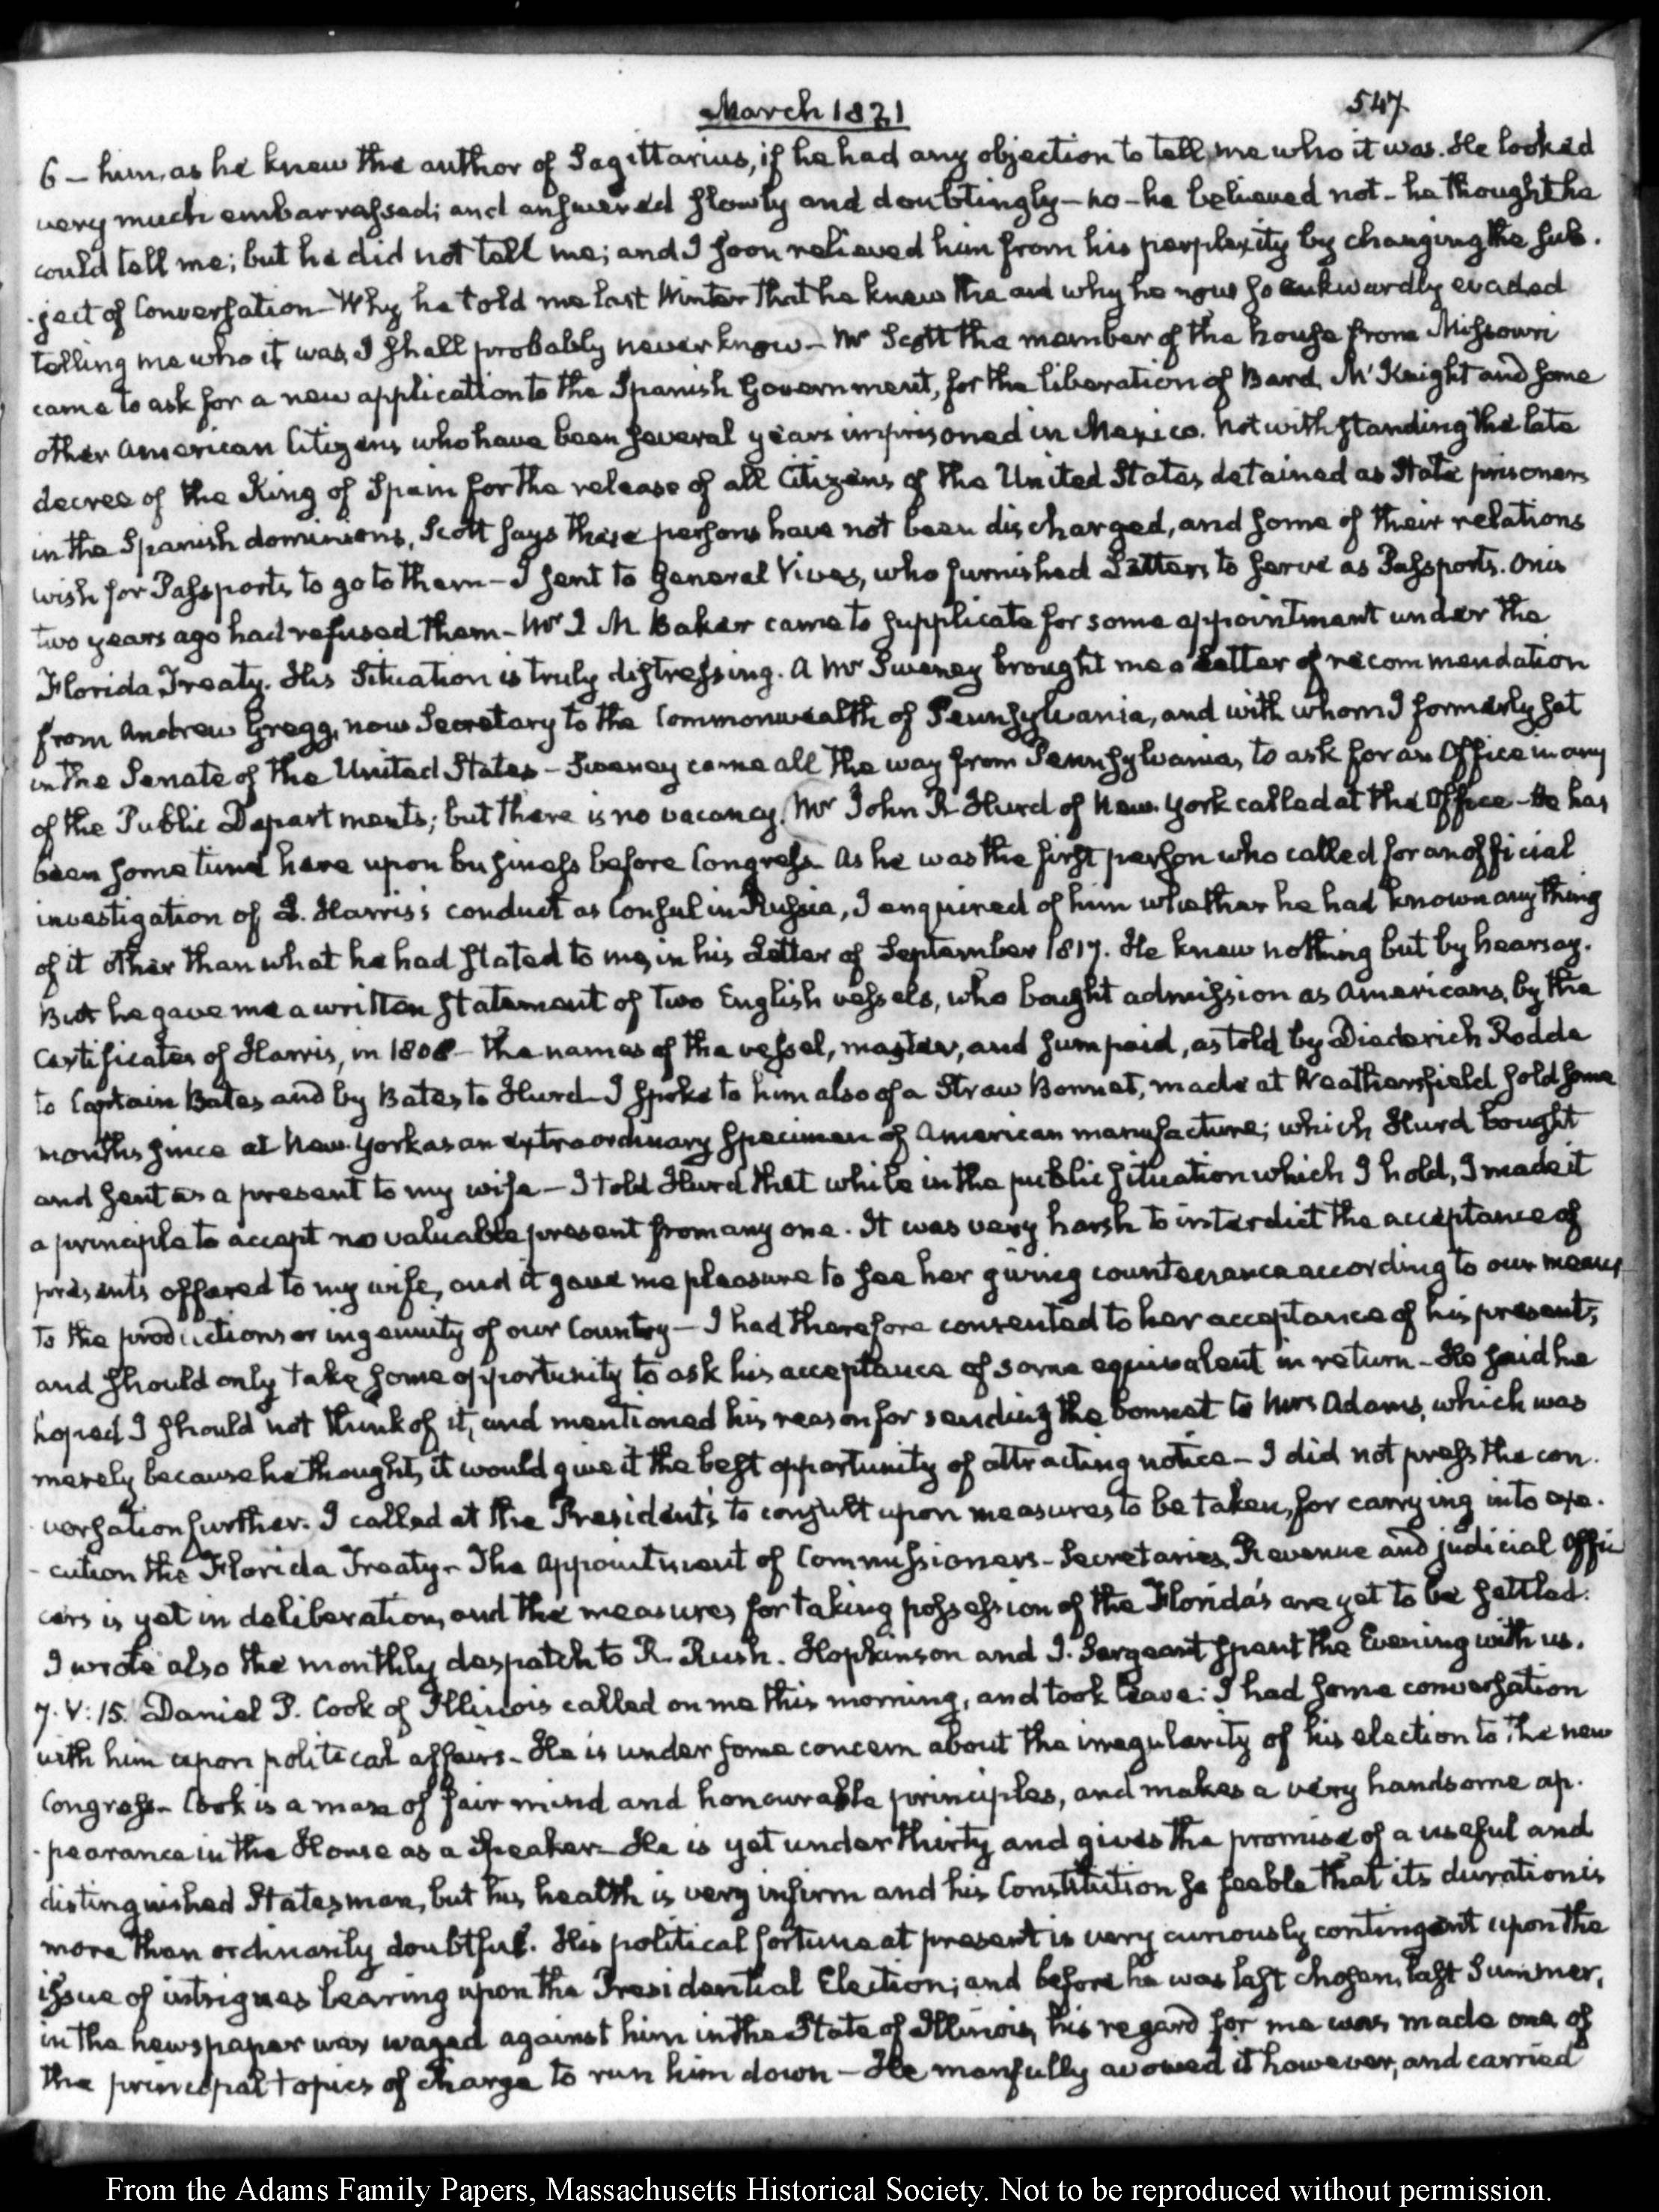 March 1821
547.
6 — him, as he knew the author of Sagittarius, if he had any objection to tell me who it was. He looked
very much embarrassed; and answered slowly and doubtingly — no — he believed not — he thought he
could tell me; but he did not tell me; and I soon relieved him from his perplexity by changing the sub-
-ject of Conversation — Why he told me last Winter that he knew the and why he now so awkwardly evaded
telling me who it was, I shall probably never know — Mr Scott the member of the house from Missouri
came to ask for a new application to the Spanish Government, for the liberation of Bard, M'Knight and some
other American Citizens who have been several years imprisoned in Mexico. Notwithstanding the late
decree of the King of Spain for the release of all Citizens of the United States detained as State prisoners
in the Spanish dominions, Scott says these persons have not been discharged, and some of their relations
wish for Passports, to go to them — I sent to General Vives, who furnished Letters to serve as Passports. Onis
two years ago had refused them — Mr I M Baker came to supplicate for some appointment under the
Florida Treaty. His Situation is truly distressing. A Mr Sweney brought me a Letter of recommendation
from Andrew Gregg, now Secretary to the Commonwealth of Pennsylvania, and with whom I formerly sat
in the Senate of the United States — Sweney came all the way from Pennsylvania, to ask for an Office in any
of the Public Departments; but there is no vacancy. Mr John R Hurd of New-York called at the Office — He has
been some time here upon business before Congress — As he was the first person who called for an official
investigation of L. Harris's conduct as Consul in Russia, I enquired of him whether he had known any thing
of it other than what he had stated to me, in his Letter of September 1817. He knew nothing but by hearsay.
But he gave me a written statement of two English vessels, who bought admission as Americans, by the
Certificates of Harris, in 1808 — the names of the vessel, master, and sum paid, as told by Diederich Rodde
to Captain Bates and by Bates to Hurd — I spoke to him also of a Straw Bonnet, made at Weathersfield sold some
months since at New-York as an extraordinary specimen of American manufacture; which Hurd bought
and sent as a present to my wife — I told Hurd that while in the public situation which I hold, I made it
a principle to accept no valuable present from any one. It was very harsh to interdict the acceptance of
presents offered to my wife, and it gave me pleasure to see her giving countenance according to our means
to the productions or ingenuity of our Country — I had therefore consented to her acceptance of his present,
and should only take some opportunity to ask his acceptance of some equivalent in return — He said he
hoped I should not think of it, and mentioned his reason for sending the bonnet to Mrs Adams, which was
merely because he thought, it would give it the best opportunity of attracting notice — I did not press the con-
-versation further. I called at the President's to consult upon measures to be taken, for carrying into exe-
-cution the Florida Treaty — The Appointment of Commissioners — Secretaries, Revenue and judicial Offi
cers is yet in deliberation, and the measures for taking possession of the Florida's are yet to be settled.
I wrote also the monthly despatch to R. Rush. Hopkinson and J. Sergeant spent the Evening with us.
7. V: 15. Daniel P. Cook of Illinois called on me this morning, and took leave: I had some conversation
with him upon political affairs — He is under some concern about the irregularity of his election to the new
Congress — Cook is a man of fair mind and honourable principles, and makes a very handsome ap-
-pearance in the House as a Speaker — He is yet under thirty and gives the promise of a useful and
distinguished Statesman, but his health is very infirm and his Constitution so feeble that its duration is
more than ordinarily doubtful. His political fortune at present is very curiously contingent upon the
issue of intrigues bearing upon the Presidential Election; and before he was last chosen, last Summer,
in the newspaper war waged against him in the State of Illinois, his regard for me was made one of
the principal topics of charge to run him down — He manfully avowed it however, and carried
From the Adams Family Papers, Massachusetts Historical Society. Not to be reproduced without permission.